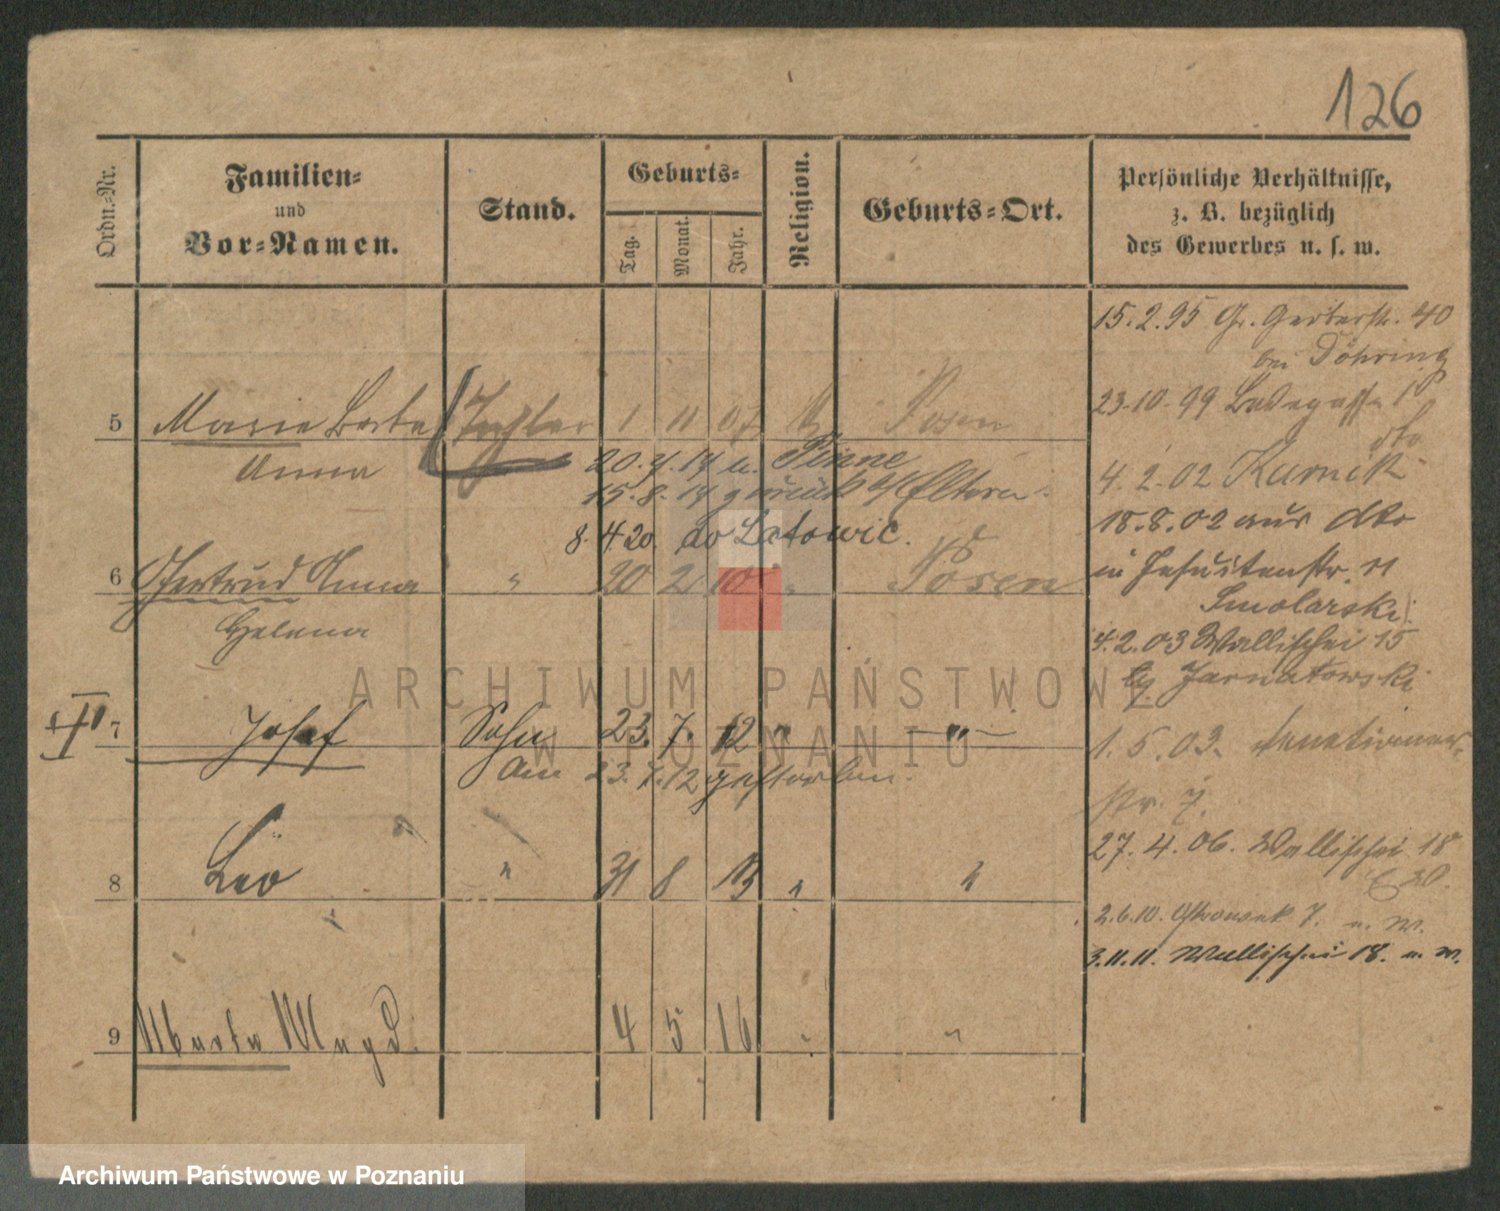 126
Ordn.-Nr.
Familien-
und
Vor-Namen.
Stand.
Geburts-
Tag.
Monat.
Jahr.
Religion.
Geburts-Ort.
Persönliche Verhältnisse,
z. B. bezüglich
des Gewerbes u. s. w.
15.2.95 Gr. Gerberstr. 40
bei Döhring
23.10.99
5 Marie Berta Tochter 1 11 07 Posen
Anna
20.4.14 n. Pinne
15.8.14 zurück z/ Eltern.
4.2.02 Kurnik
18.8.02 aus dto
8.4.20 Latowic.
6 Gertrud Anna " 20 2 10 " Posen
Helena
in Jesuitenstr. 11
Smolarski
4.2.03 Wallischei 15
Jarnatowski
7 Josef Sohn 23. 7. 12 " "
am 23.7.12 gestorben.
1.5.03.
str. 7.
27.4.06. Wallischei 18
8 Leo " 31 8 13 " "
2.6.10. 7. u. W.
3.11.11. Wallischei 18. u. W.
9 Marta Magd. 4 5 16 " "
ARCHIWUM PAŃSTWOWE
W POZNANIU
Archiwum Państwowe w Poznaniu